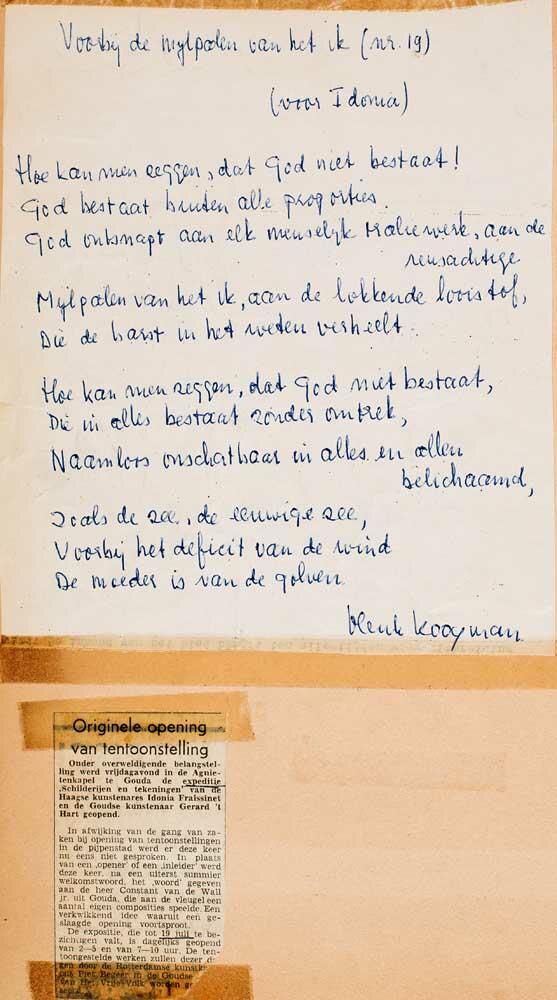 Voorbij de mijlpalen van het ik (nr. 19)
(voor Idonia)
Hoe kan men zeggen, dat God niet bestaat!
God bestaat buiten alle proporties.
God ontsnapt aan elk menselijk maliewerk, aan de
reusachtige
Mijlpalen van het ik, aan de lokkende looistof,
Die de barst in het weten verheelt.
Hoe kan men zeggen, dat God niet bestaat,
Die in alles bestaat zonder omtrek,
Naamloos onschatbaar in alles en allen
belichaamd,
Zoals de zee, de eeuwige zee,
Voorbij het deficit van de wind
De moeder is van de golven.
Henk Kooyman
Originele opening
van tentoonstelling
Onder overweldigende belangstel-
ling werd vrijdagavond in de Agnie-
tenkapel te Gouda de expeditie
„Schilderijen en tekeningen" van de
Haagse kunstenares Idonia Fraissinet
en de Goudse kunstenaar Gerard 't
Hart geopend.
In afwijking van de gang van za-
ken bij opening van tentoonstellingen
in de pijpenstad werd er deze keer
nu eens niet gesproken. In plaats
van een „opener" of een „inleider" werd
deze keer, na een uiterst summier
welkomstwoord, het „woord" gegeven
aan de heer Constant van de Wall
jr. uit Gouda, die aan de vleugel een
aantal eigen composities speelde. Een
verkwikkend idee waaruit een ge-
slaagde opening voortsproot.
De expositie, die tot 19 juli te be-
zichtigen valt, is dagelijks geopend
van 2—5 en van 7—10 uur. De ten-
toongestelde werken zullen dezer da-
gen door de Rotterdamse kunstkr
Piet Begeer in de Goudse
van Het Vrije Volk worden